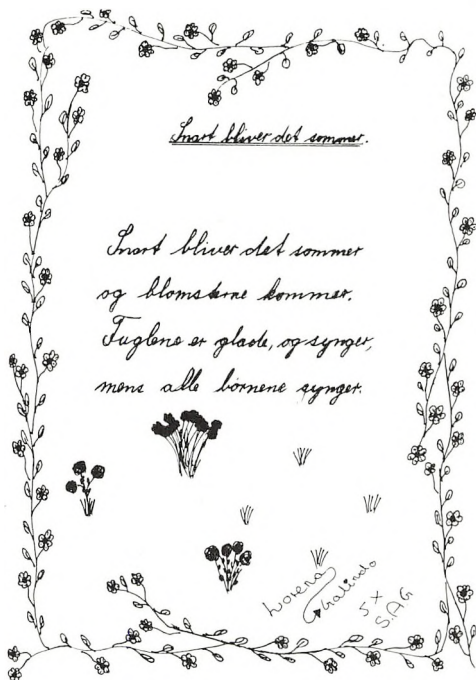 Snart bliver det sommer.
Snart bliver det sommer
og blomsterne kommer.
Fuglene er glade, og synger,
mens alle børnene gynger.
Lorena
Galindo
5 X
S.A.G